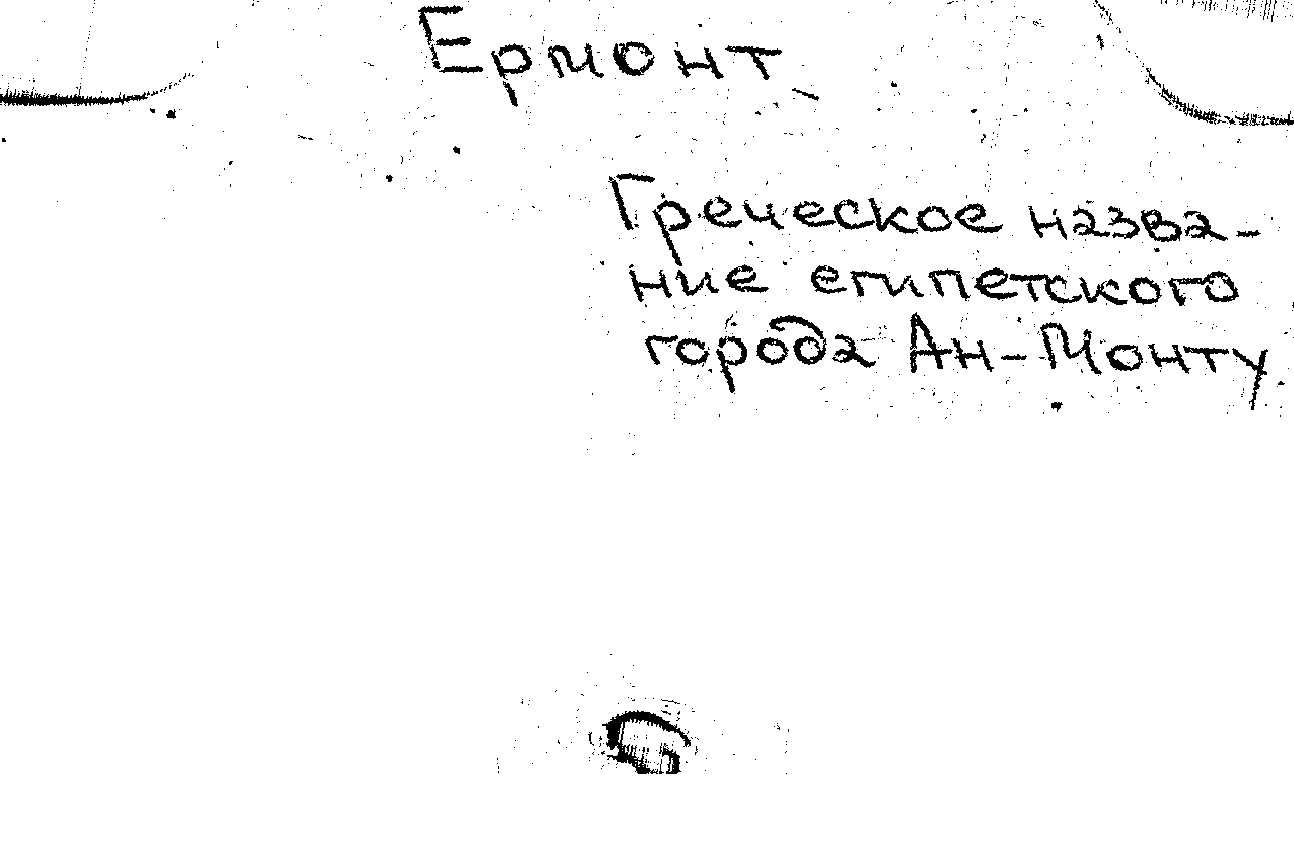 Ермонт
Греческое назва-
ние египетского
города Ан-Монту